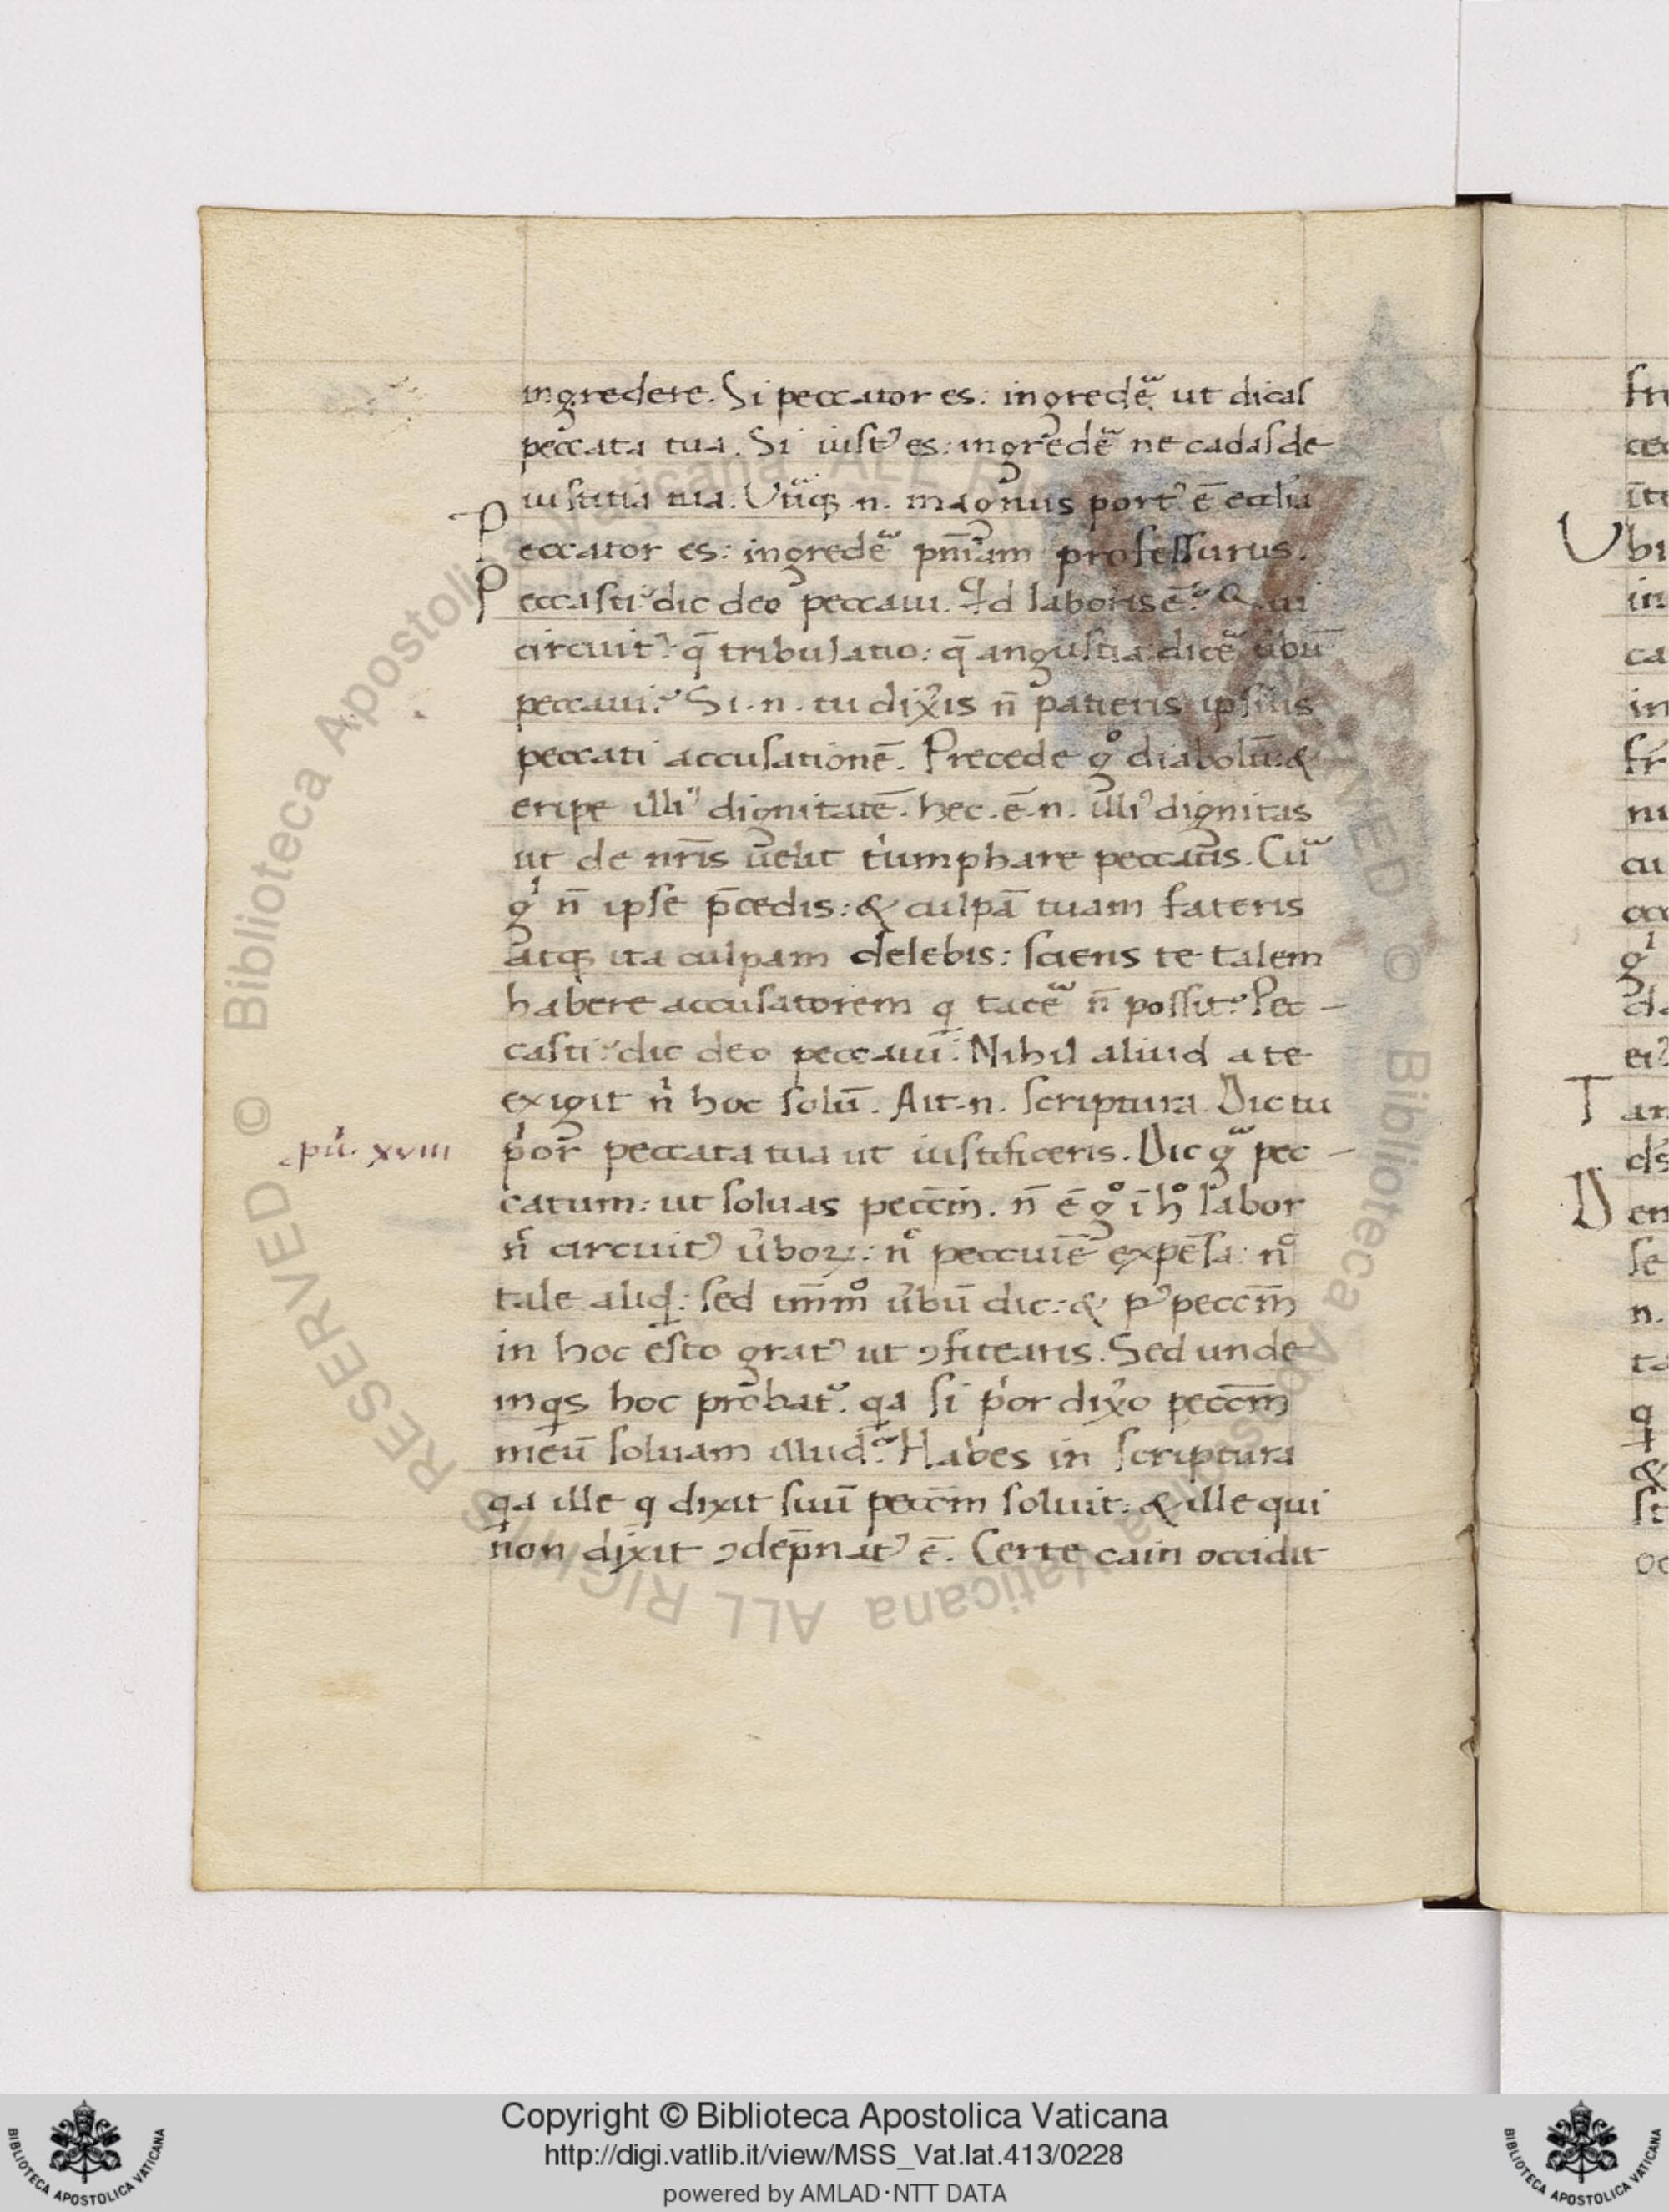 ingredere. Si peccator es: ingredẽ ut dicas
peccata tua. Si iustꝰ es: ingredẽ ne cadas de
iustitia tua. Utͥusqꝫ .n. magnus portꝰ ē ecclīa
Peccator es: ingredẽ pn̄iam professurus.
Peccasti? dic deo peccaui. Id laboris ē?
circuitꝰ? q̄ tribulatio: q̄ angustia dicẽ ubū
peccaui? Si .n. tu dix̉is n̄ patieris ipsiꝰ
peccati accusationē. Precede gͦ diabolū: &
eripe illiꝰ dignitatē. hec .ē .n. illiꝰ dignitas
ut de nr̄is uelit tͥumphare peccatis. Cū
gͥ n̄ ipse p̄cedis: & culpā tuam fateris
atqꝫ ita culpam delebis: sciens te talem
habere accusatorem q tacẽ n̄ possit? Pec-
casti? dic deo peccaui. Nihil aliud a te
exigit nͥ hoc solū. Ait .n. scriptura. Dic tu
pͥor peccata tua ut iustificeris. Dic gͣ pec-
catum: ut soluas pecc̄m. n̄ ē gͦ ī hͦ labor
nͦ circuitꝰ ůboꝝ: nͦ peccuiē expēsa: nͦ
tale aliqd: sed tm̄mͦ ůbū dic: & pꝰ pecc̄m
in hoc esto gratꝰ ut ꝯfitearis. Sed unde
inqͥs hoc probat̃. qa si pͥor dix̉o pecc̄m
meū soluam illud? Habes in scriptura
qa ille q dixit suū pecc̄m soluit: & ille qui
non dixit ꝯdēpnatꝰ ē. Certe cain occidit
pū. xviii
Ubi
in
ca
in
T
D
n.
q
&
Copyright © Biblioteca Apostolica Vaticana
http://digi.vatlib.it/view/MSS_Vat.lat.413/0228
powered by AMLAD·NTT DATA
BIBLIOTECA APOSTOLICA VATICANA
BIBLIOTECA APOSTOLICA VATICANA
© Biblioteca Apostolica Vaticana ALL RIGHTS RESERVED © Biblioteca Apostolica Vaticana ALL RIGHTS RESERVED